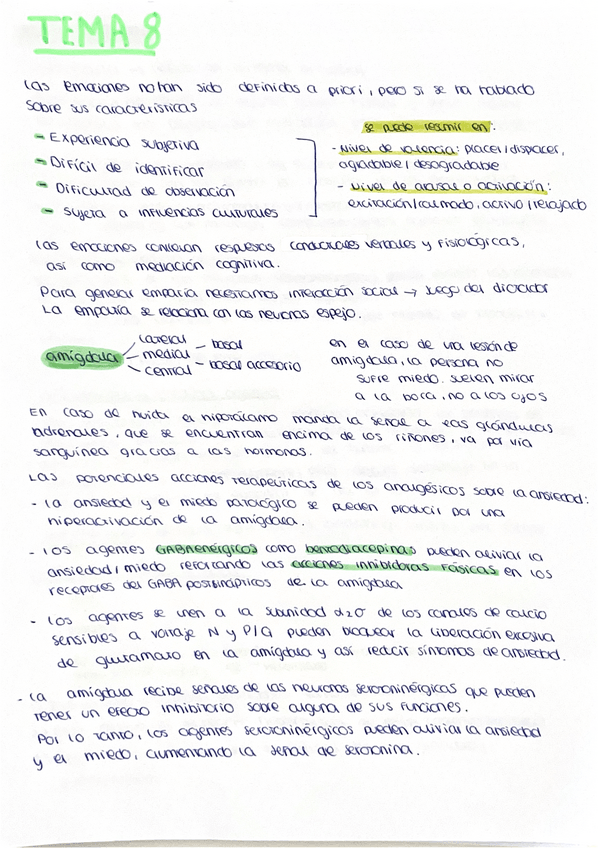 TEMA 8
Las emociones no han sido definidas a priori, pero si se ha hablado
sobre sus características
- Experiencia subjetiva
- Difícil de identificar
- Dificultad de observación
- Sujeta a influencias culturales
se puede resumir en:
- Nivel de valencia: placer/displacer,
agradable/desagradable
- Nivel de arousal o activación:
excitación/calmado, activo/relajado
Las emociones conllevan respuestas conductuales verbales y fisiológicas,
así como mediación cognitiva.
Para generar empatía necesitamos interacción social → Juego del dictador
La empatía se relaciona con las neuronas espejo.
amígdala
lateral
medial
central
basal
basal accesorio
en el caso de una lesión de
amígdala, la persona no
sufre miedo. suelen mirar
a la boca, no a los ojos
En caso de huida el hipotálamo manda la señal a las glándulas
adrenales, que se encuentran encima de los riñones, va por vía
sanguínea gracias a las hormonas.
Las potenciales acciones terapéuticas de los analgésicos sobre la ansiedad:
- la ansiedad y el miedo patológico se pueden producir por una
hiperactivación de la amígdala.
- los agentes GABAenérgicos como benzodiacepinas pueden aliviar la
ansiedad/miedo reforzando las acciones inhibidoras fásicas en los
receptores del GABA postsinápticos de la amígdala
- los agentes se unen a la subunidad α2δ de los canales de calcio
sensibles a voltaje N y P/Q pueden bloquear la liberación excesiva
de glutamato en la amígdala y así reducir síntomas de ansiedad.
- la amígdala recibe señales de las neuronas serotoninérgicas que pueden
tener un efecto inhibitorio sobre alguna de sus funciones.
Por lo tanto, los agentes serotoninérgicos pueden aliviar la ansiedad
y el miedo, aumentando la señal de serotonina.